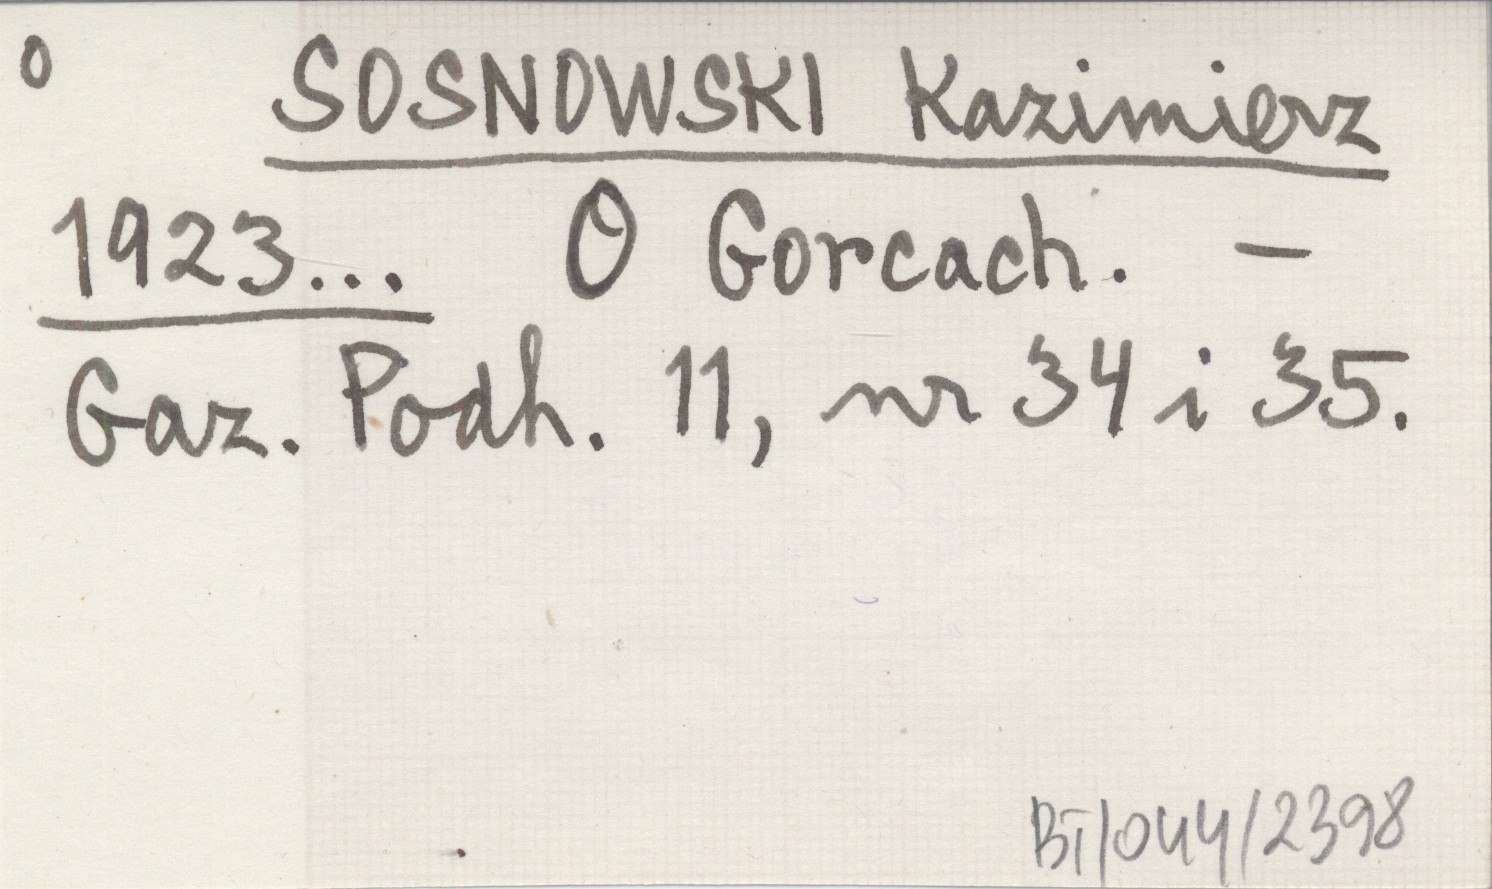 o SOSNOWSKI Kazimierz
1923... O Gorcach. –
Gaz. Podh. 11, nr 34 i 35.
BT/044/2398